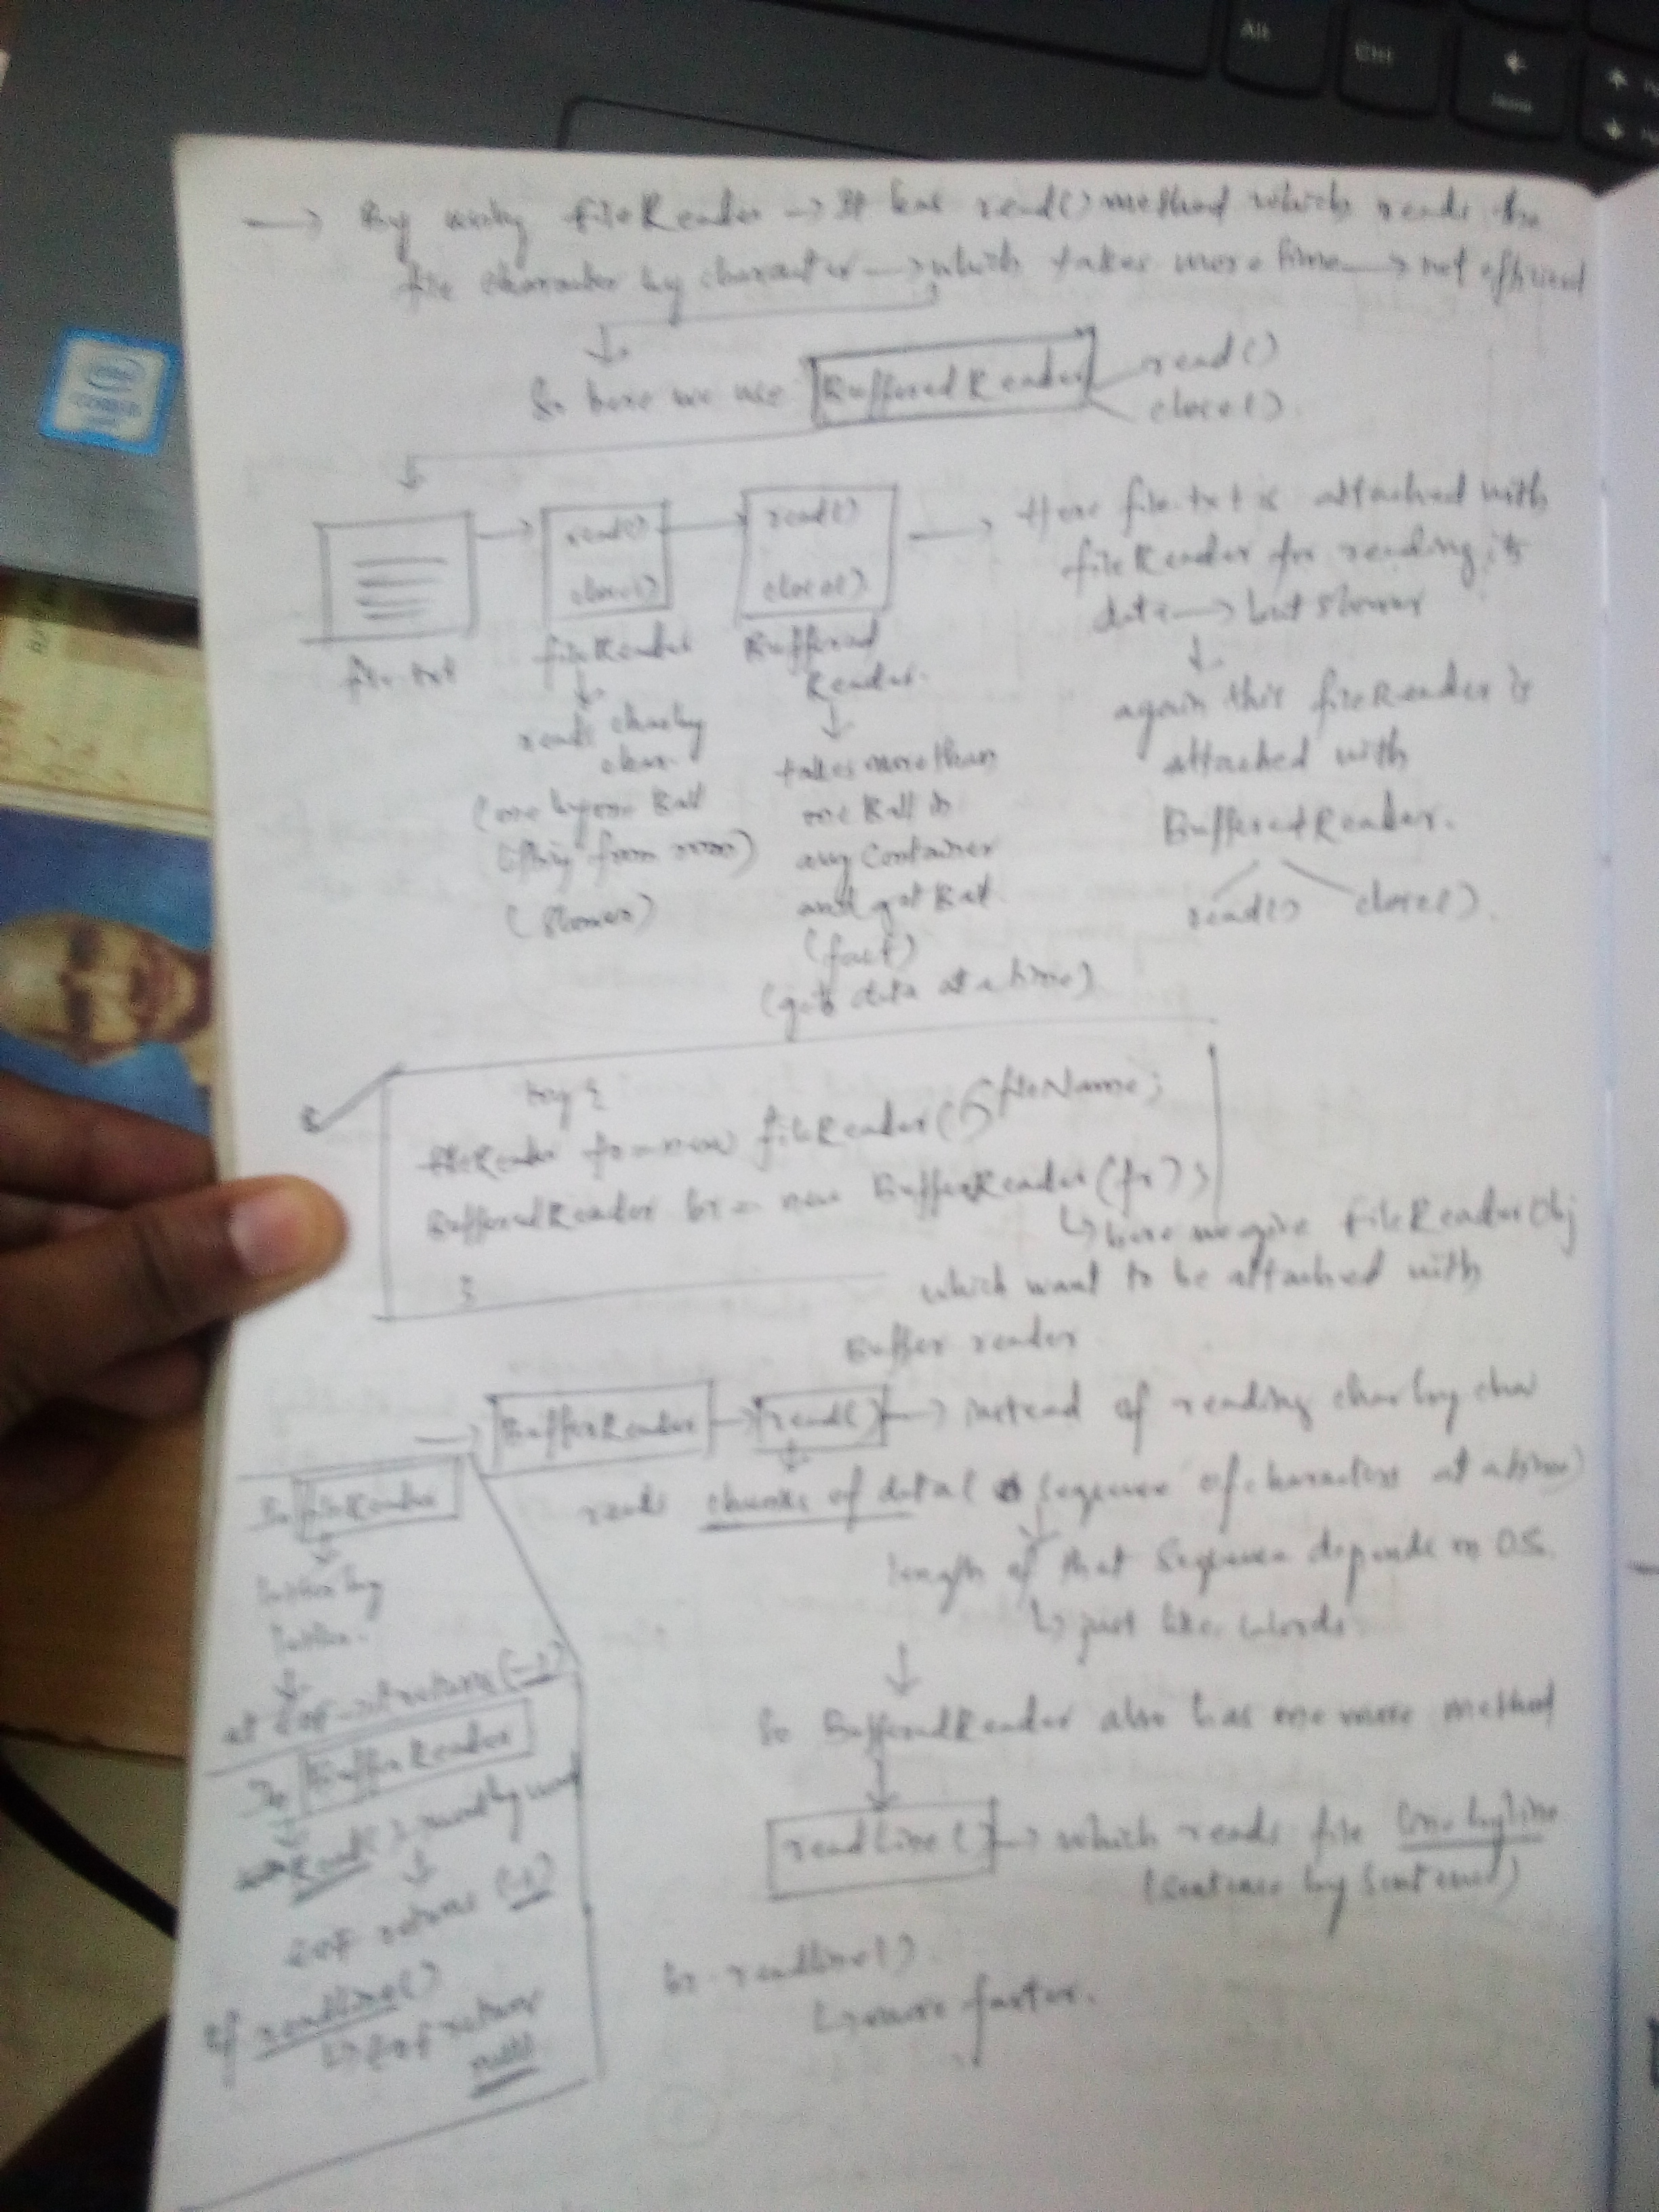 → By using fileReader → It has read() method which reads the
file character by character → which takes more time → not efficient
So here we use BufferedReader
read()
close().
file.txt
read()
close()
fileReader
reads char by
char.
(one by one Ball
from room)
(slower)
read()
close()
Buffered
Reader.
takes more than
one Ball in
any Container
and got Ball.
(fast)
(gets data at a time)
→ Here file.txt is attached with
fileReader for reading its
data → but slower
again this fileReader is
attached with
BufferedReader.
read() close().
try {
fileReader fr = new fileReader( fileName;
BufferedReader br = new BufferReader(fr);
}
↳ here we give fileReader Obj
which want to be attached with
Buffer reader
→ BufferReader → read() → instead of reading char by char
reads chunks of data ( sequence of characters at a time)
length of that sequence depends on O.S.
↳ just like words.
So BufferedReader also has one more method
readLine() → which reads file line by line
(sentence by sentence)
br.readline().
↳ more faster.
In fileReader
letter by
letter.
at EOF → it returns (-1)
In BufferReader
Read() → word by word
EOF returns (-1)
If readline()
↳ EOF returns
null
Alt
Ctrl
Home